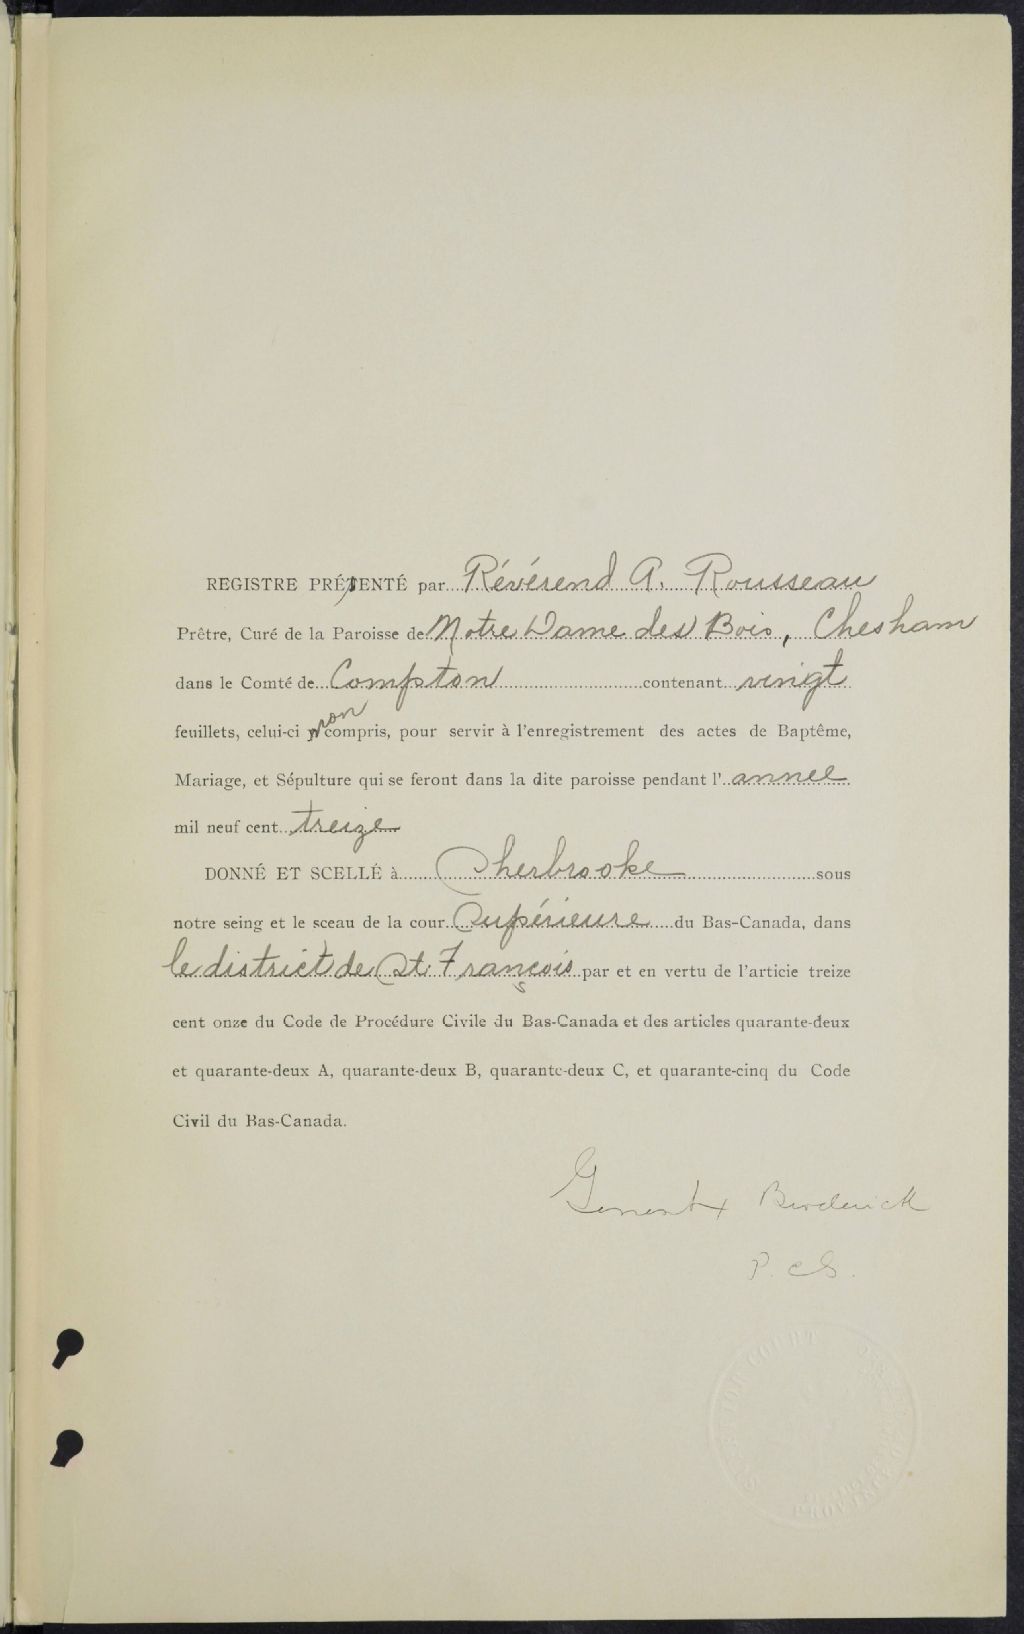 REGISTRE PRÉSENTÉ par Révérend A. Rousseau
Prêtre, Curé de la Paroisse de Notre Dame des Bois, Chesham
dans le Comté de Compton contenant vingt
feuillets, celui-ci non compris, pour servir à l'enregistrement des actes de Baptême,
Mariage, et Sépulture qui se feront dans la dite paroisse pendant l'annee
mil neuf cent treize
DONNÉ ET SCELLÉ à Sherbrooke sous
notre seing et le sceau de la cour Supérieure du Bas-Canada, dans
le district de St. François par et en vertu de l'articie treize
cent onze du Code de Procédure Civile du Bas-Canada et des articles quarante-deux
et quarante-deux A, quarante-deux B, quarante-deux C, et quarante-cinq du Code
Civil du Bas-Canada.
P. C. S.
SUPERIOR COURT
PROVINCE OF